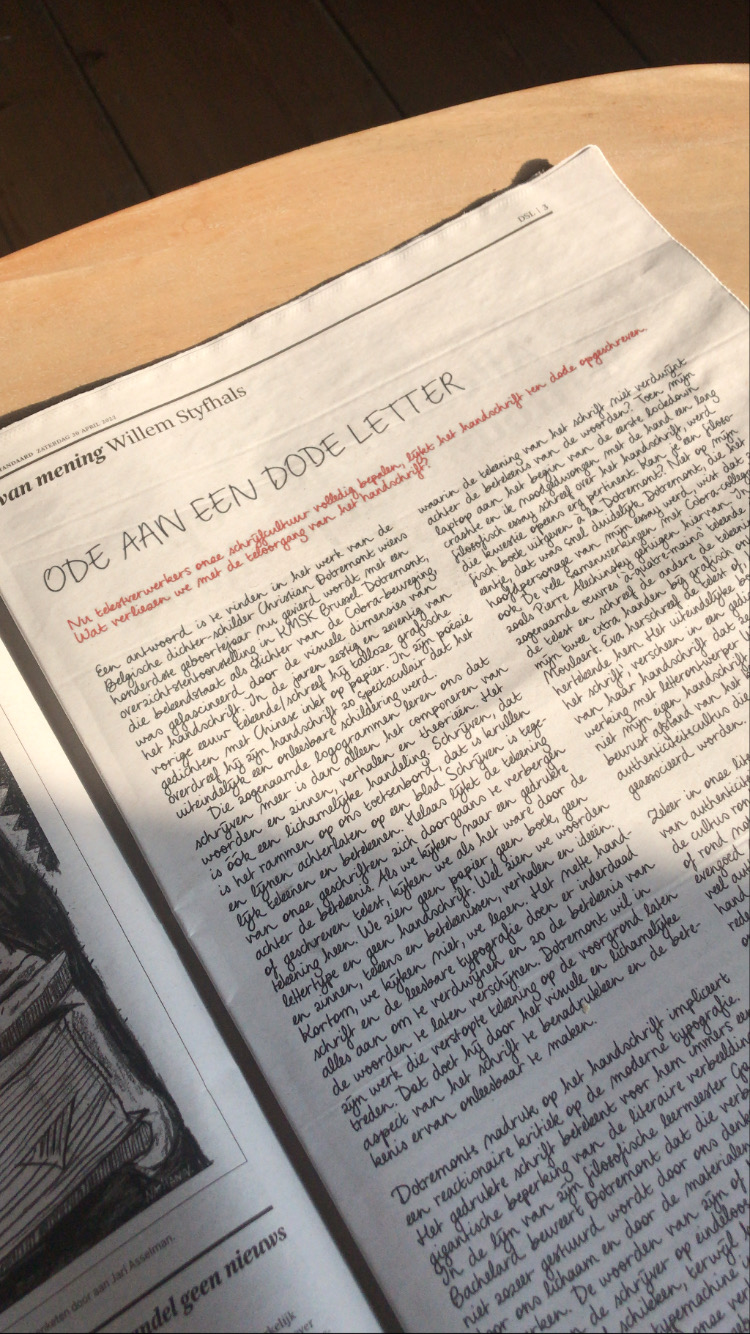 DSL | 3
STANDAARD ZATERDAG 30 APRIL 2022
van mening Willem Styfhals
ODE AAN EEN DODE LETTER
Nu tekstverwerkers onze schrijfcultuur volledig bepalen, lijkt het handschrift ten dode opgeschreven.
Wat verliezen we met de teloorgang van het handschrift?
Een antwoord is te vinden in het werk van de
Belgische dichter-schilder Christian Dotremont wiens
honderdste geboortejaar nu gevierd wordt met een
overzichtstentoonstelling in KMSK Brussel. Dotremont,
die bekendstaat als stichter van de Cobra-beweging,
was gefascineerd door de visuele dimensies van
het handschrift. In de jaren zestig en zeventig van
vorige eeuw tekende/schreef hij talloze grafische
gedichten met Chinese inkt op papier. In zijn poëzie
overdreef hij zijn handschrift zo spectaculair dat het
uiteindelijk een onleesbare schildering werd.
Die zogenaamde logogrammen leren ons dat
schrijven meer is dan alleen het componeren van
woorden en zinnen, verhalen en theorieën. Het
is óók een lichamelijke handeling. Schrijven, dat
is het rammen op ons toetsenbord, dat is krullen
en lijnen achterlaten op een blad. Schrijven is tege-
lijk tekenen en betekenen. Helaas lijkt de tekening
van onze geschriften zich doorgaans te verbergen
achter de betekenis. Als we kijken naar een gedrukte
of geschreven tekst, kijken we als het ware door de
tekening heen. We zien geen papier, geen boek, geen
lettertype en geen handschrift. Wel zien we woorden
en zinnen, tekens en betekenissen, verhalen en ideeën.
Kortom, we kijken niet, we lezen. Het nette hand-
schrift en de leesbare typografie doen er inderdaad
alles aan om te verdwijnen en zo de betekenis van
de woorden te laten verschijnen. Dotremont wil in
zijn werk die verstopte tekening op de voorgrond laten
treden. Dat doet hij door het visuele en lichamelijke
aspect van het schrift te benadrukken en de bete-
kenis ervan onleesbaar te maken.
Dotremonts nadruk op het handschrift impliceert
een reactionaire kritiek op de moderne typografie.
Het gedrukte schrift betekent voor hem immers een
gigantische beperking van de literaire verbeelding
In de lijn van zijn filosofische leermeester
Bachelard beweert Dotremont dat die
niet zozeer gestuurd wordt door ons
door ons lichaam en door de
De woorden van zijn of
de schrijver op
schikken, terwijl
typemachine
waarin de tekening van het schrift niet verdwijnt
achter de betekenis van de woorden? Toen mijn
laptop aan het begin van de eerste lockdown
crashte en ik noodgedwongen met de hand een lang
filosofisch essay schreef over het handschrift, werd
die kwestie opeens erg pertinent. Kan je een filoso-
fisch boek uitgeven à la Dotremont? Niet op mijn
eentje, dat was snel duidelijk. Dotremont, die het
hoofdpersonage van mijn essay werd, wist dat
ook. De vele samenwerkingen met
zoals Pierre Alechinsky getuigen hiervan. In
zogenaamde oeuvres à quatre mains tekende
de tekst en schreef de andere de
mijn twee extra handen bij grafisch
Moulaert. Eva herschreef de tekst of
hertekende hem. Het uiteindelijke
het schrift' verscheen in een
van haar handschrift dat
werking met letterontwerper
niet mijn eigen handschrift
bewust afstand van het
authenticiteitscultus die
geassocieerd worden.
Zeker in onze
van authenticiteit
de cultus
of rond
evengoed
veel
hand
ndel geen nieuws
door aan Jari Asselman.